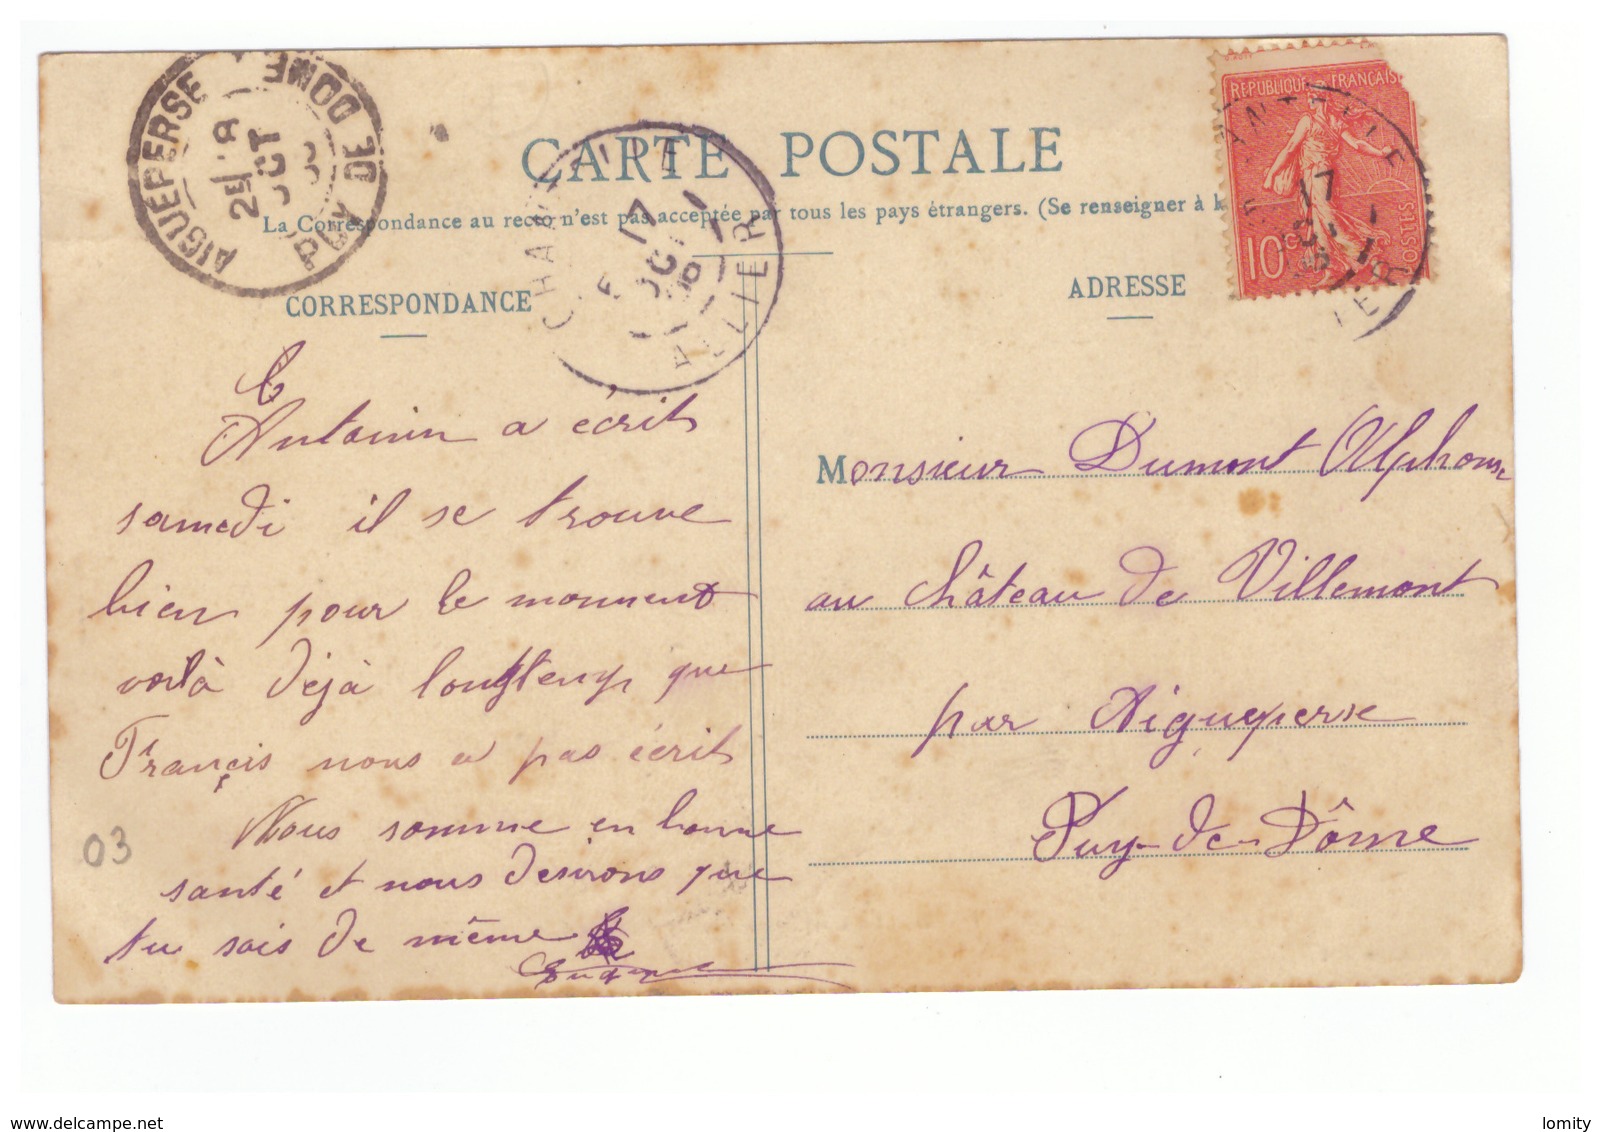 AIGUEPERSE
PUY DE DOME
2E/ 8
OCT
CARTE POSTALE
La Correspondance au recto n'est pas acceptée par tous les pays étrangers. (Se renseigner à la
REPUBLIQUE FRANÇAISE
10c
POSTES
17
CHANTELLE
17
OCT
ALLIER
CORRESPONDANCE
ADRESSE
Antonin a écrit
samedi il se trouve
bien pour le moment
voilà déjà longtemps que
Français nous a pas écrit
Nous somme en bonne
santé et nous desirons que
tu sois de même
Monsieur Dumont Alphonse
au Château de Villemont
par Aigueperse
Puy-de-Dôme
03
delcampe.net
lomity